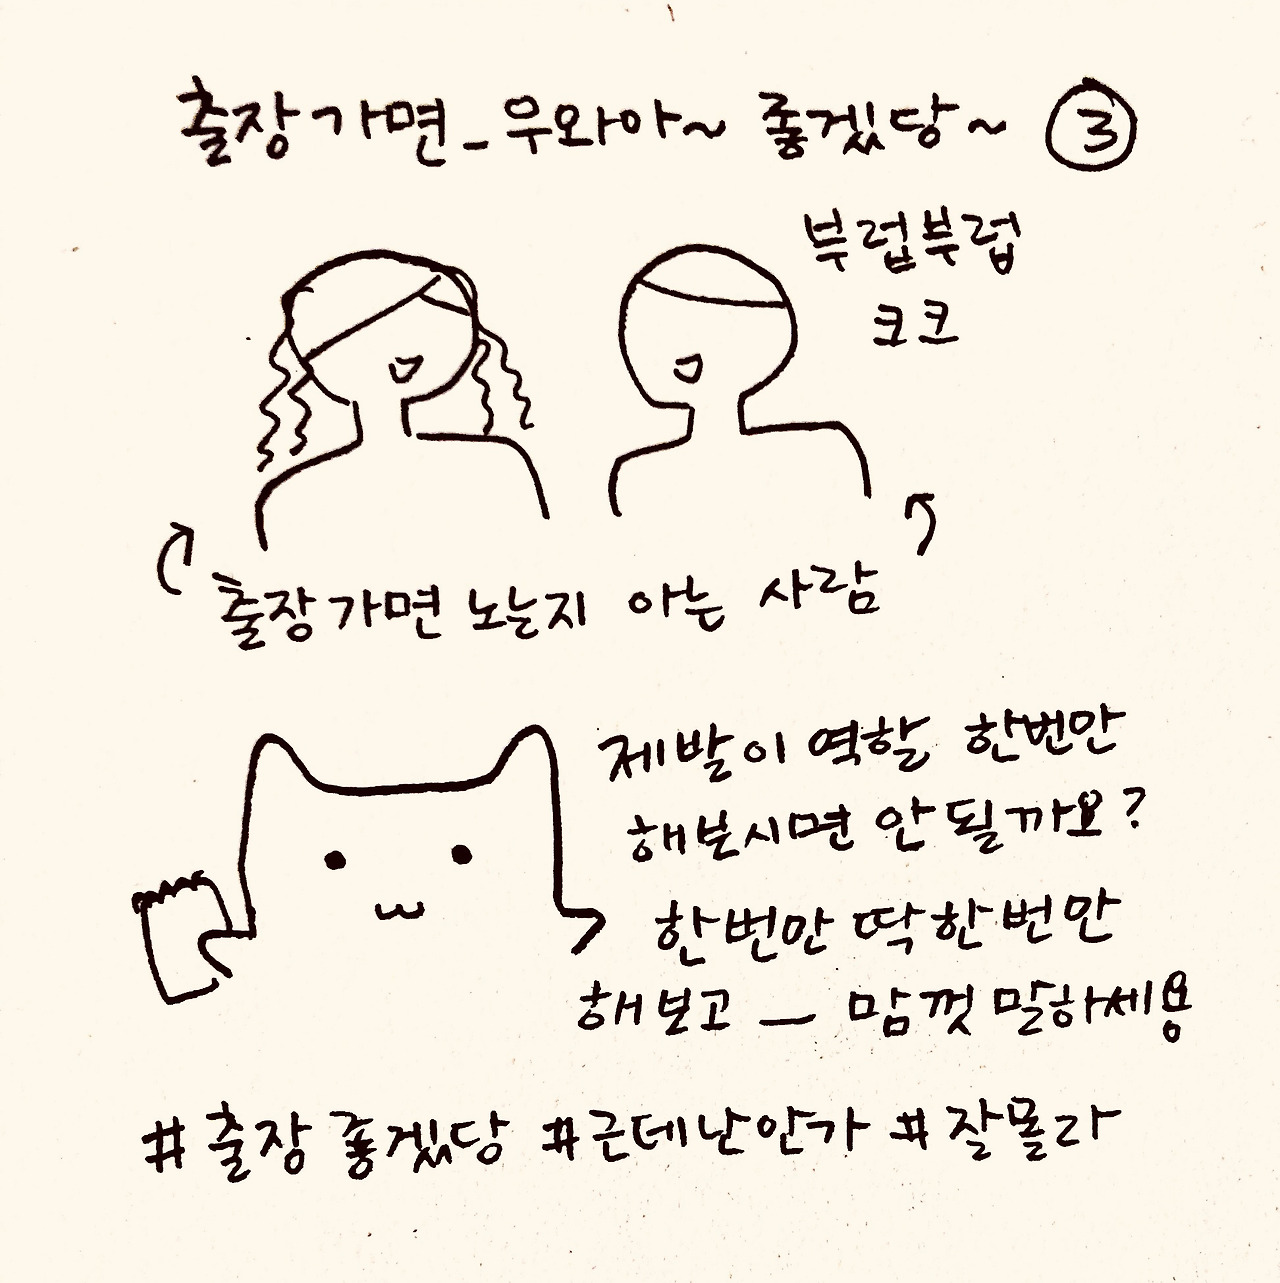 출장가면_우와아~ 좋겠당~ ③
부럽부럽
크크
출장가면 노는지 아는 사람
제발이 역할 한번만
해보시면 안될까요?
한번만 딱한번만
해보고 — 맘껏 말하세용
#출장좋겠당 #근데난안가 #잘몰라